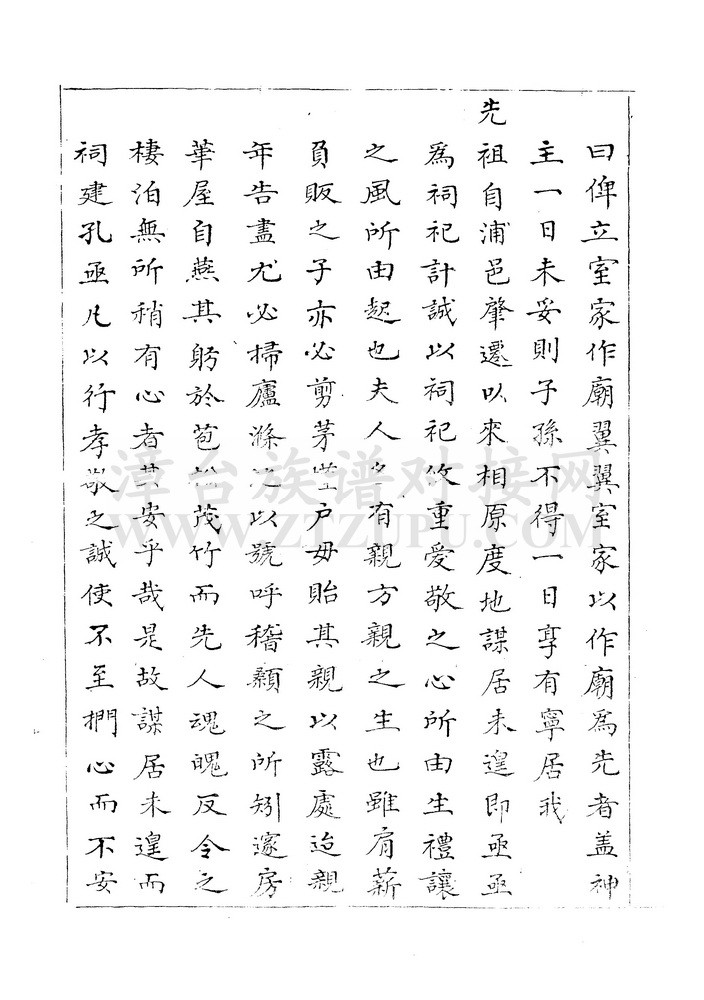 曰俾立室家作廟翼翼室家以作廟爲先者盖神
主一日未妥則子孫不得一日享有寧居我
先祖自浦邑肇遷以來相原度地謀居未遑即亟亟
爲祠祀計誠以祠祀攸重愛敬之心所由生禮讓
之風所由起也夫人之有親方親之生也雖肩薪
負販之子亦必剪茅墐户毋貽其親以露處迨親
年告盡尤必掃廬滌 以號呼稽顙之所矧邃房
華屋自燕其躬於苞松茂竹而先人魂魄反令之
棲泊無所稍有心者其安乎哉是故謀居未遑而
祠建孔亟凡以行孝敬之誠使不至捫心而不安
漳台族谱对接网
WWW.ZTZUPU.COM